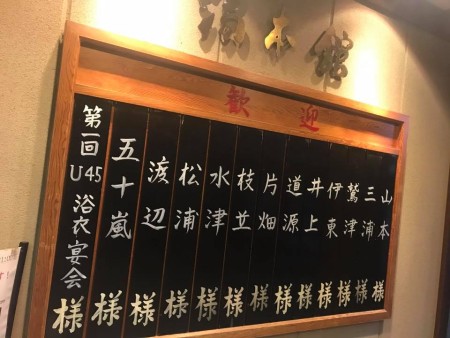 滝本館
歓迎
山本様
三浦様
鷲津様
伊東様
井上様
道源様
片畑様
枝並様
水津様
松浦様
渡辺様
五十嵐様
第一回U45浴衣宴会様